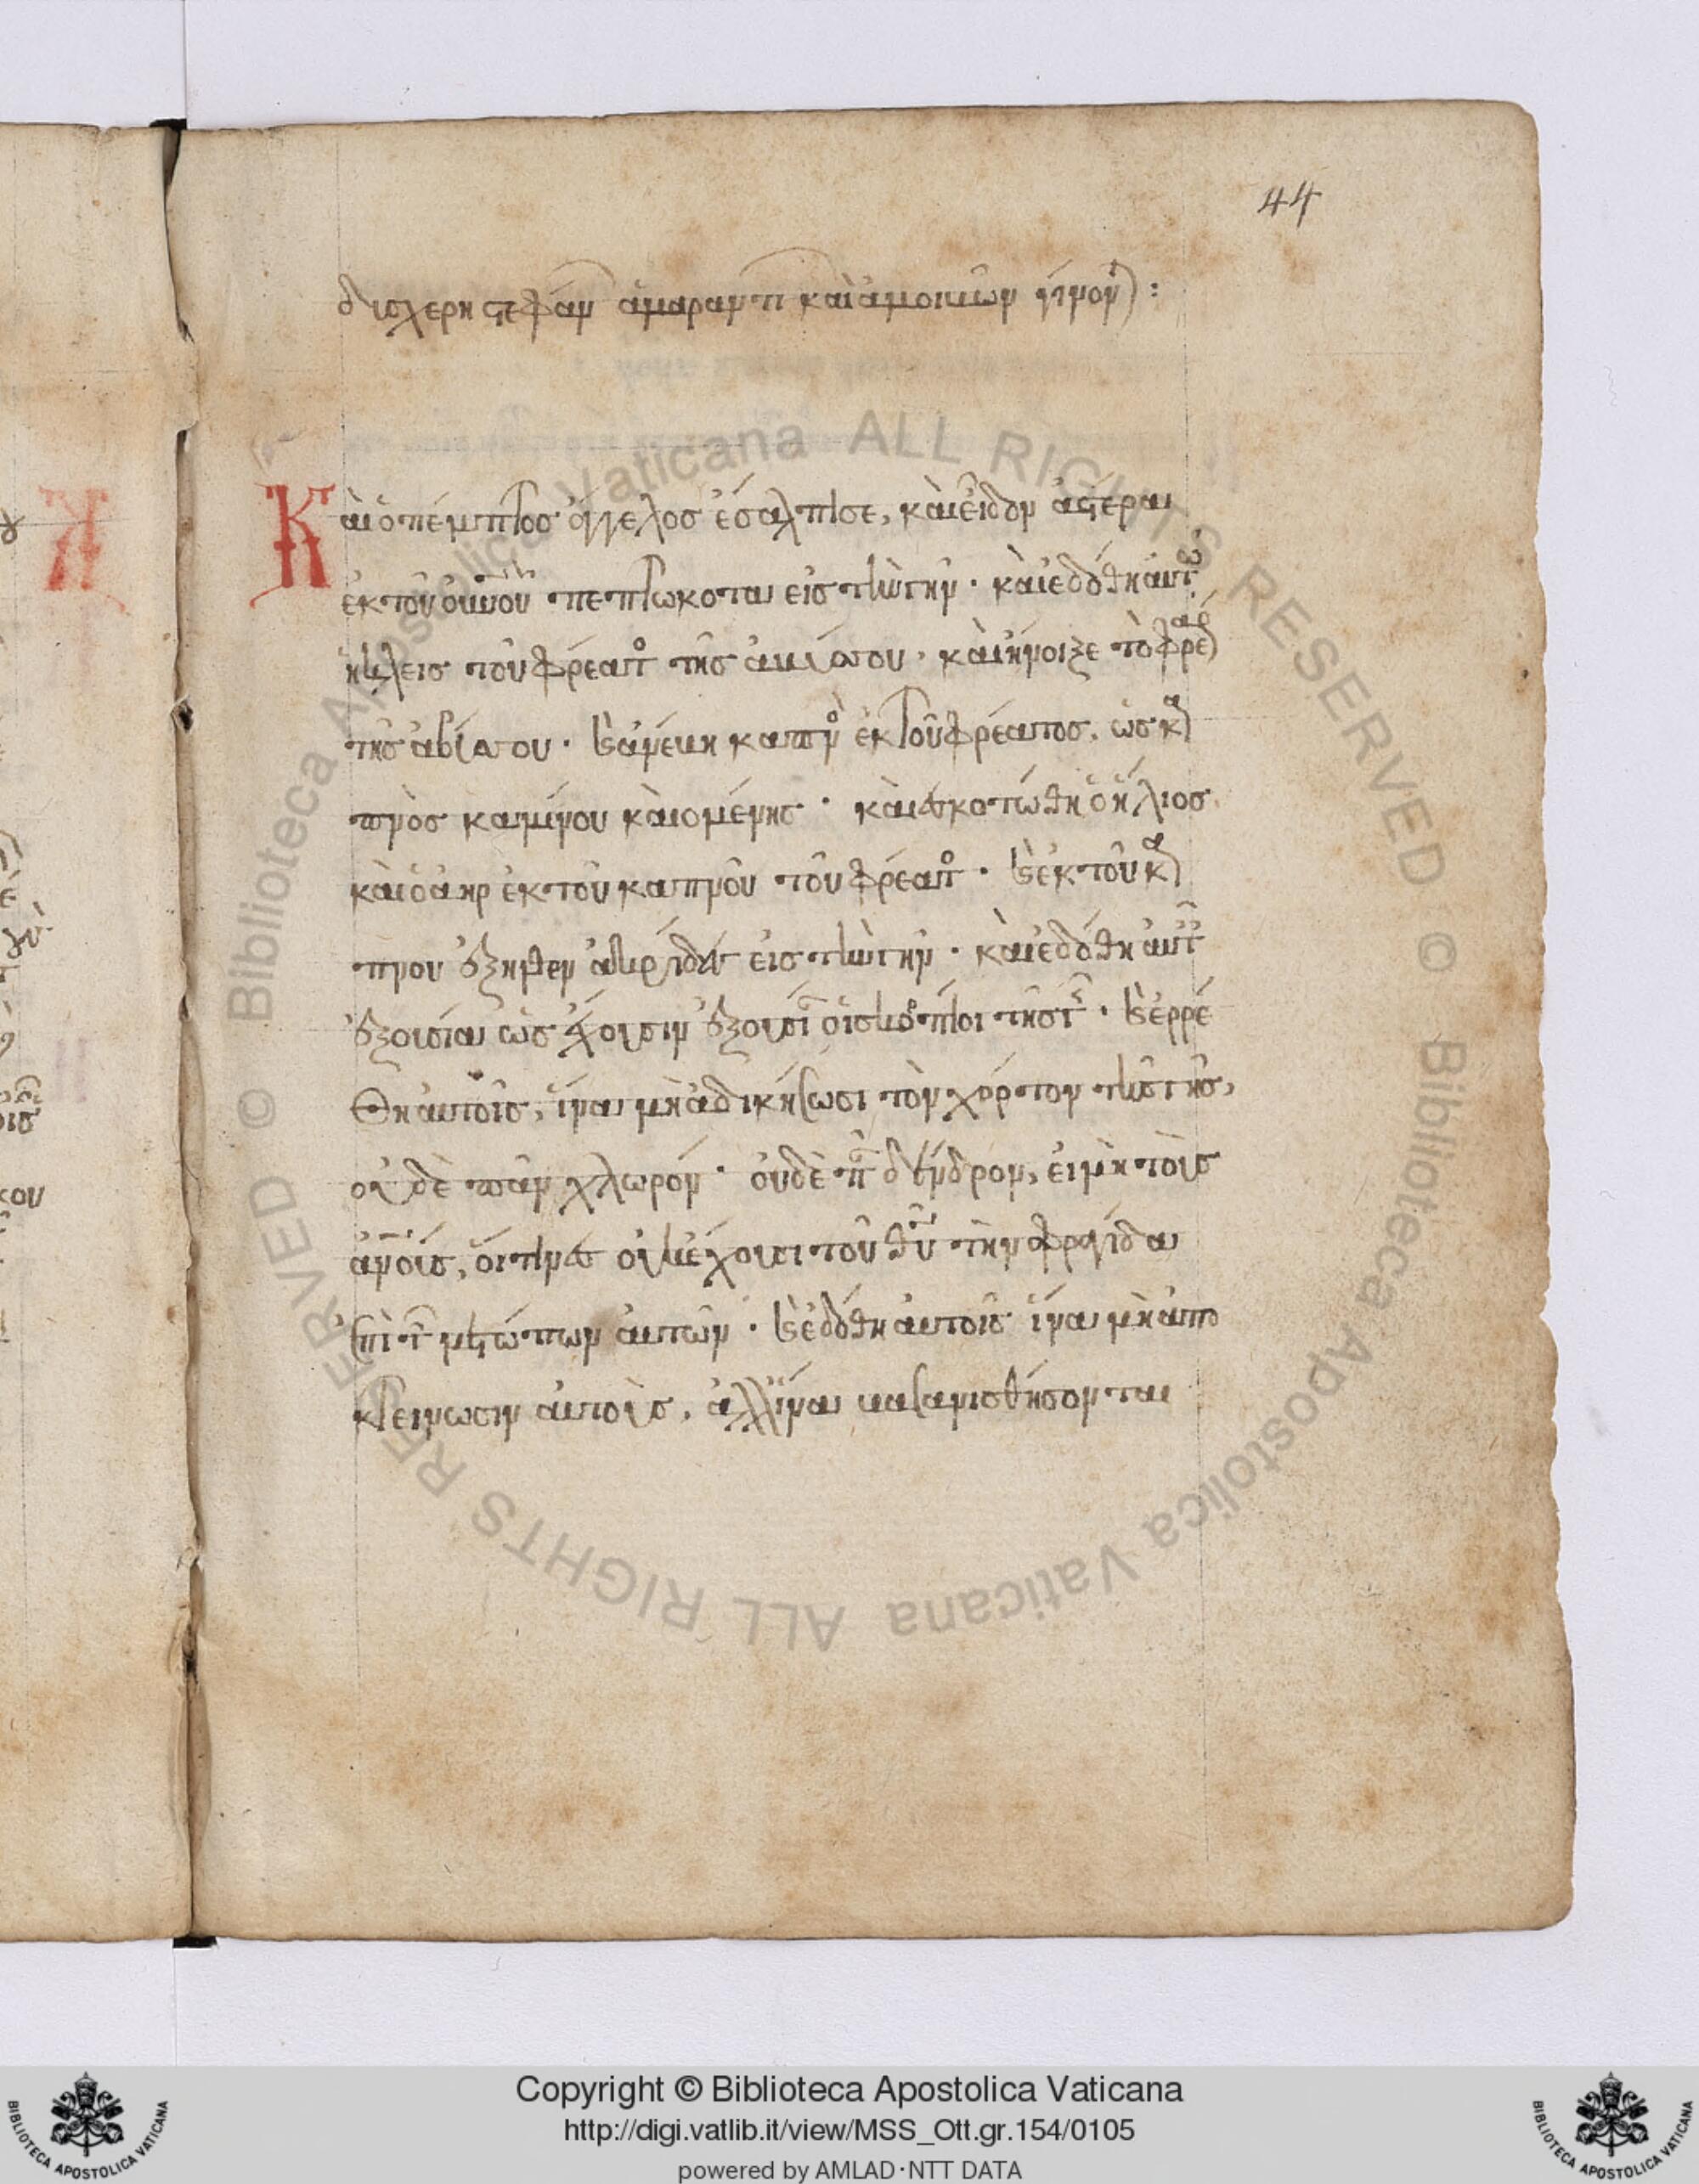 44
δυσχερῆ στεφαν ἀμαραντι καὶ ἀμοιβῶν γίνον :
Καὶ ὁ πέμπτος ἄγγελος ἐσάλπισε, καὶ εἶδον ἀστέρα
ἐκ τοῦ οὐνοῦ πεπτωκότα εἰς τὴν γῆν · καὶ ἐδόθη αὐτῶ
ἡ κλεὶς τοῦ φρέατο τῆς ἀβύσσου · καὶ ἤνοιξε τὸ φρέαρ
τῆς ἀβύσσου · κ ἀνέβη καπνὸ ἐκ τοῦ φρέατος, ὡς κα
πνὸς καμίνου καιομένης · καὶ ἐσκοτώθη ὁ ἥλιος
καὶ ὁ ἀὴρ ἐκ τοῦ καπνοῦ τοῦ φρέατο · κ ἐκ τοῦ κα
πνου ἐξῆλθον ἀκρίδες εἰς τὴν γῆν · καὶ ἐδόθη αὐτ
ἐξουσία ὡς ἔχουσιν ἐξουσί οἱ σκορπίοι τῆς γ · κ ἐρρέ
θη αὐτοῖς, ἵνα μὴ ἀδικήσωσι τὸν χόρτον τῆς γῆς,
οὐδὲ πᾶν χλωρόν · οὐδὲ π δένδρον, εἰ μὴ τοὺς
ἀνοὺς, οἵτινες οὐκ ἔχουσι τοῦ θυ τὴν σφραγίδα
ἐπὶ τ μετώπων αὐτῶν · κ ἐδόθη αὐτοῖς ἵνα μὴ ἀπο
κτείνωσιν αὐτοὺς, ἀλλ' ἵνα βασανισθήσονται
Copyright © Biblioteca Apostolica Vaticana
http://digi.vatlib.it/view/MSS_Ott.gr.154/0105
powered by AMLAD·NTT DATA
BIBLIOTECA APOSTOLICA VATICANA
BIBLIOTECA APOSTOLICA VATICANA
© Biblioteca Apostolica Vaticana ALL RIGHTS RESERVED © Biblioteca Apostolica Vaticana ALL RIGHTS RESERVED